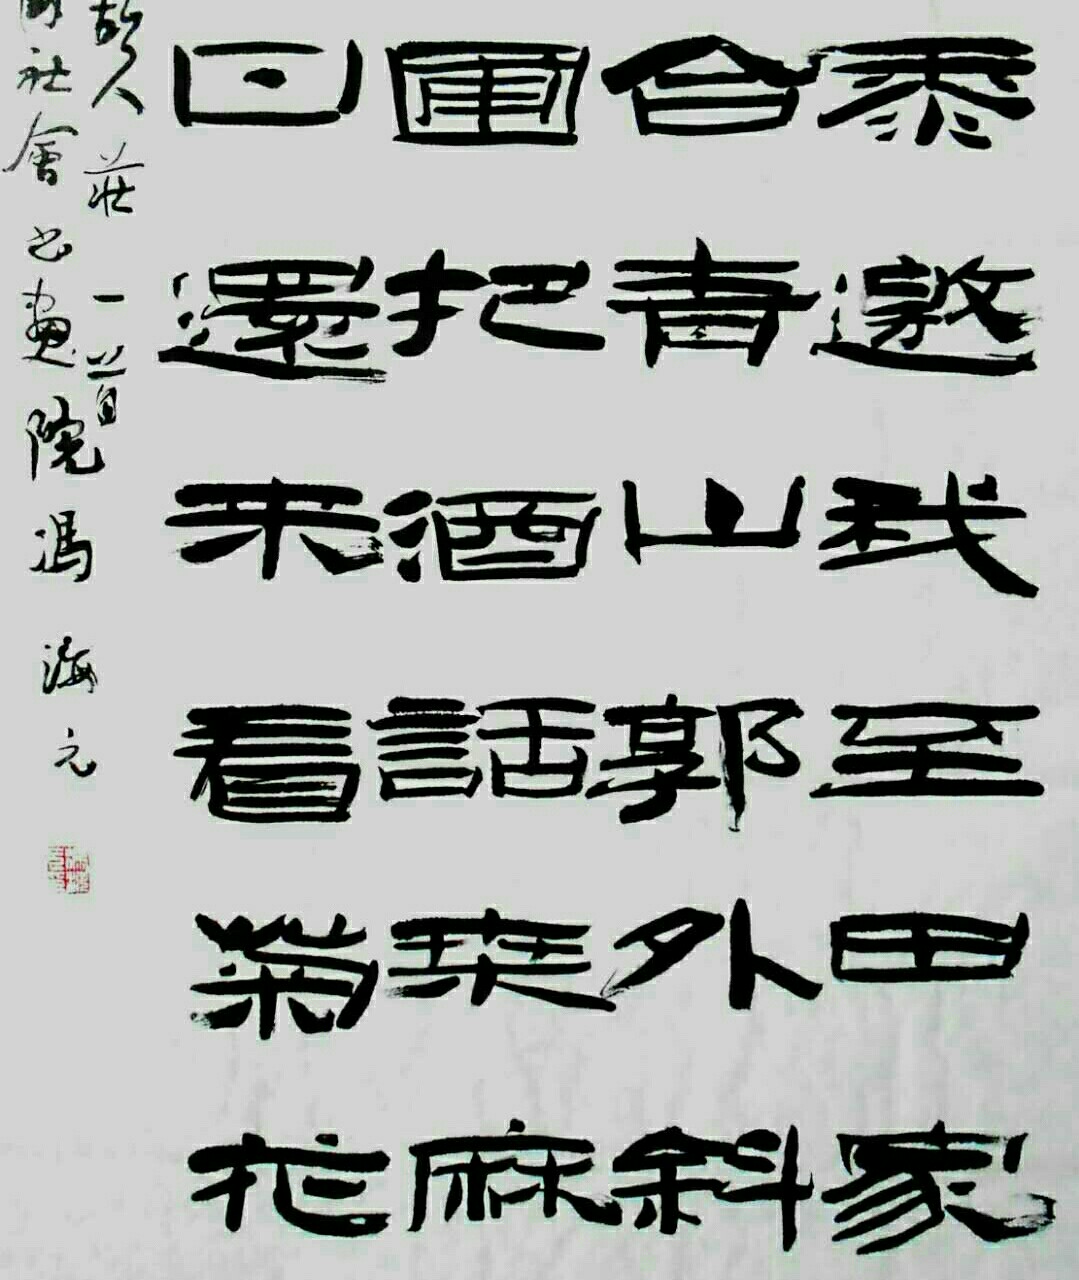 黍邀我至田家
合青山郭外斜
圃把酒話桒麻
日還来看菊花
故人莊一首
社會书畫院馮海元